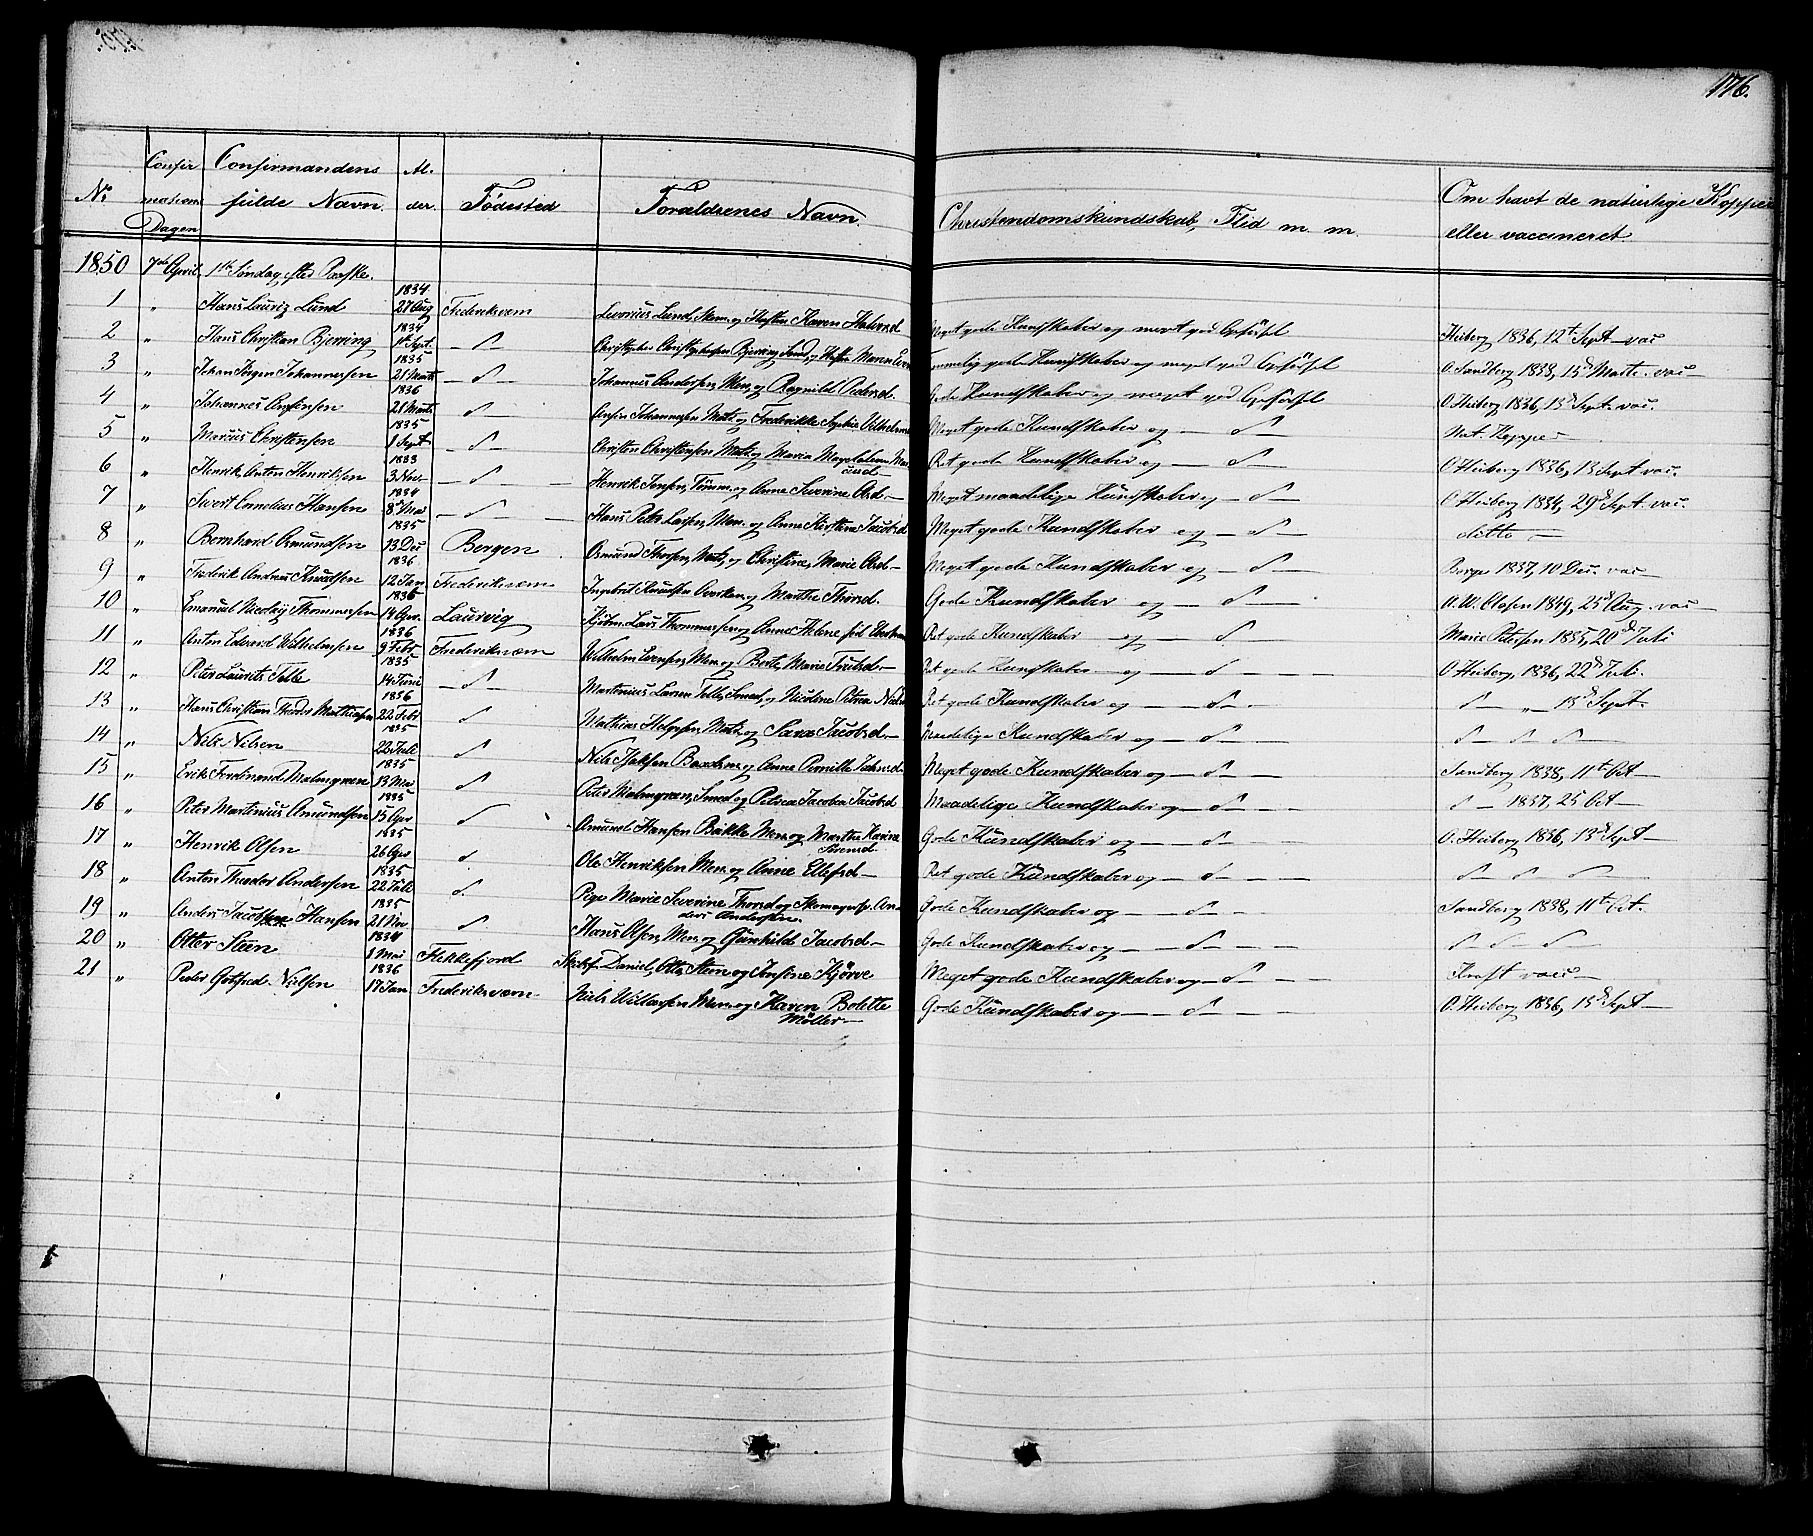 176.
No
Confirmations Dagen
Confirmandens fulde Navn.
Alder.
Fødested
Forældrenes Navn.
Christendomskundskab, Flid m. m.
Om havt de naturlige Kopper eller vaccineret.
1850 7de April. 1ste Søndag efter Paaske.
1 " Hans Lauriz Lund 1834 27 Aug Frederiksværn Lund, Mem. og Hustru Karen Halvorsd Meget gode Kundskaber og meget god Opførsel Heiberg 1836, 12te Sept vac
2 " Hans Christian Bjerring 1834 1te Sept. — d — Christopher Christophersen Bjerring Smed, og Maren Temmelig gode Kundskaber og meget god Opførsel O. Sandberg 1838, 15de Marts. vac
3 " Johan Jørgen Johannessen 1835 21 Marts — d — Johannes Andersen, Mem. og Ragnild Pedersd. Gode Kundskaber og meget god Opførsel O. Heiberg 1836, 13de Sept. vac.
4 " Johannes 1836 28 Marts — d — Johannessen Mat. og Frederikke Sophie Vilhelmine Meget gode Kundskaber og — d — Nat. Kopper
5 " Marcus Christensen 1835 1 Sept — d — Christen Christensen Mat. og Maria Magdalena Ret gode Kundskaber og — d — O. Heiberg 1836, 13 Sept vac.
6 " Henrik Anton Henriksen 1833 3 Nov — d — Henrik Jensen, Tømm. og Anne Severine Olsd. Meget maadelige Kundskaber og — d — O. Heiberg 1834, 29de Sept. vac.
7 " Sivert Cornelius Hansen 1834 8de Mai — d — Hans Peter Larsen, Mem. og Anne Kirstine Jacobsd Meget gode Kundskaber og — d — ditto
8 " Bernhard Osmundsen 1835 13 Dec Bergen Osmund Thorsen, Mat. og Christine Marie Olsd. Meget gode Kundskaber og — d — 1837, 10 Dec. vac
9 " Frederik Andreas Knudsen 1836 12 Jan Frederiksværn Ingebrit Knudsen og Marthe Thorsd. Gode Kundskaber og — d — O. W. Olsen 1849, 25de Aug. vac
10 " Emanuel Nicolay Thommessen 1836 14 Apr. Laurvig Lars Thommessen og Anne Helene Ret gode Kundskaber og — d — Marie Petersen 1835, 20de Juli
11 " Anton Edvard Wilhelmsen 1836 9 Febr Frederiksværn Wilhelm Evensen, Mem. og Berte Marie Ret gode Kundskaber og — d — O. Heiberg 1836, 22de Juli.
12 " Peter Laurits Telle 1835 14 Juni — d — Martinius Larsen Telle, Smed, og Nicoline Petrea Ret gode Kundskaber og — d — d — „ — 13de Sept.
13 " Hans Christian Theodor Mathiasen 1836 22 Febr d Mathias Helgesen Mat. og Sara Jacobsd. Maadelige Kundskaber og — d — d — d — d
14 " Nils Nilsen 1835 22 Juli d Nils Isaksen og Anne Pernille Meget gode Kundskaber og — d — Sandberg 1838, 11te Oct
15 " Erik Ferdinand Malmgren 1835 13 Mai d Peter Malmgren, Smed og Petrea Jacobea Jacobsd Maadelige Kundskaber og — d — d — 1837, 25 Oct
16 " Peter Martinius Amundsen 1835 15 Apr d Amund Hansen Bakke Mem. og Marthe Karine Sørensd. Gode Kundskaber og — d — O. Heiberg 1836, 13de Sept
17 " Henrik Olsen 1835 26 Apr d. Ole Henriksen Mem. og Anne Ellefsd Ret gode Kundskaber og — d — d — d — d
18 " Anton Theodor Andersen 1835 22 Juli d. Pige Marie Severine Thorsd og Skomagersv. Anders Andersen. Gode Kundskaber og — d — Sandberg 1838, 11te Oct.
19 " Anders Jacobsen Hansen 1835 21 Nov d Hans Olsen, Mem. og Gunhilde Jacobsd Gode Kundskaber og — d — d d d
20 " Otter Steen 1834 1 Mai Flekkefjord Daniel Otto Steen og Josine Kjørve Meget gode Kundskaber og — d — Kraft vac
21 " Peder Gotfred Nilsen 1836 17 Jan Frederiksværn. Niels Willassen Mem. og Karen Bolette Møller Gode Kundskaber og — d — O. Heiberg 1836, 13de Sept